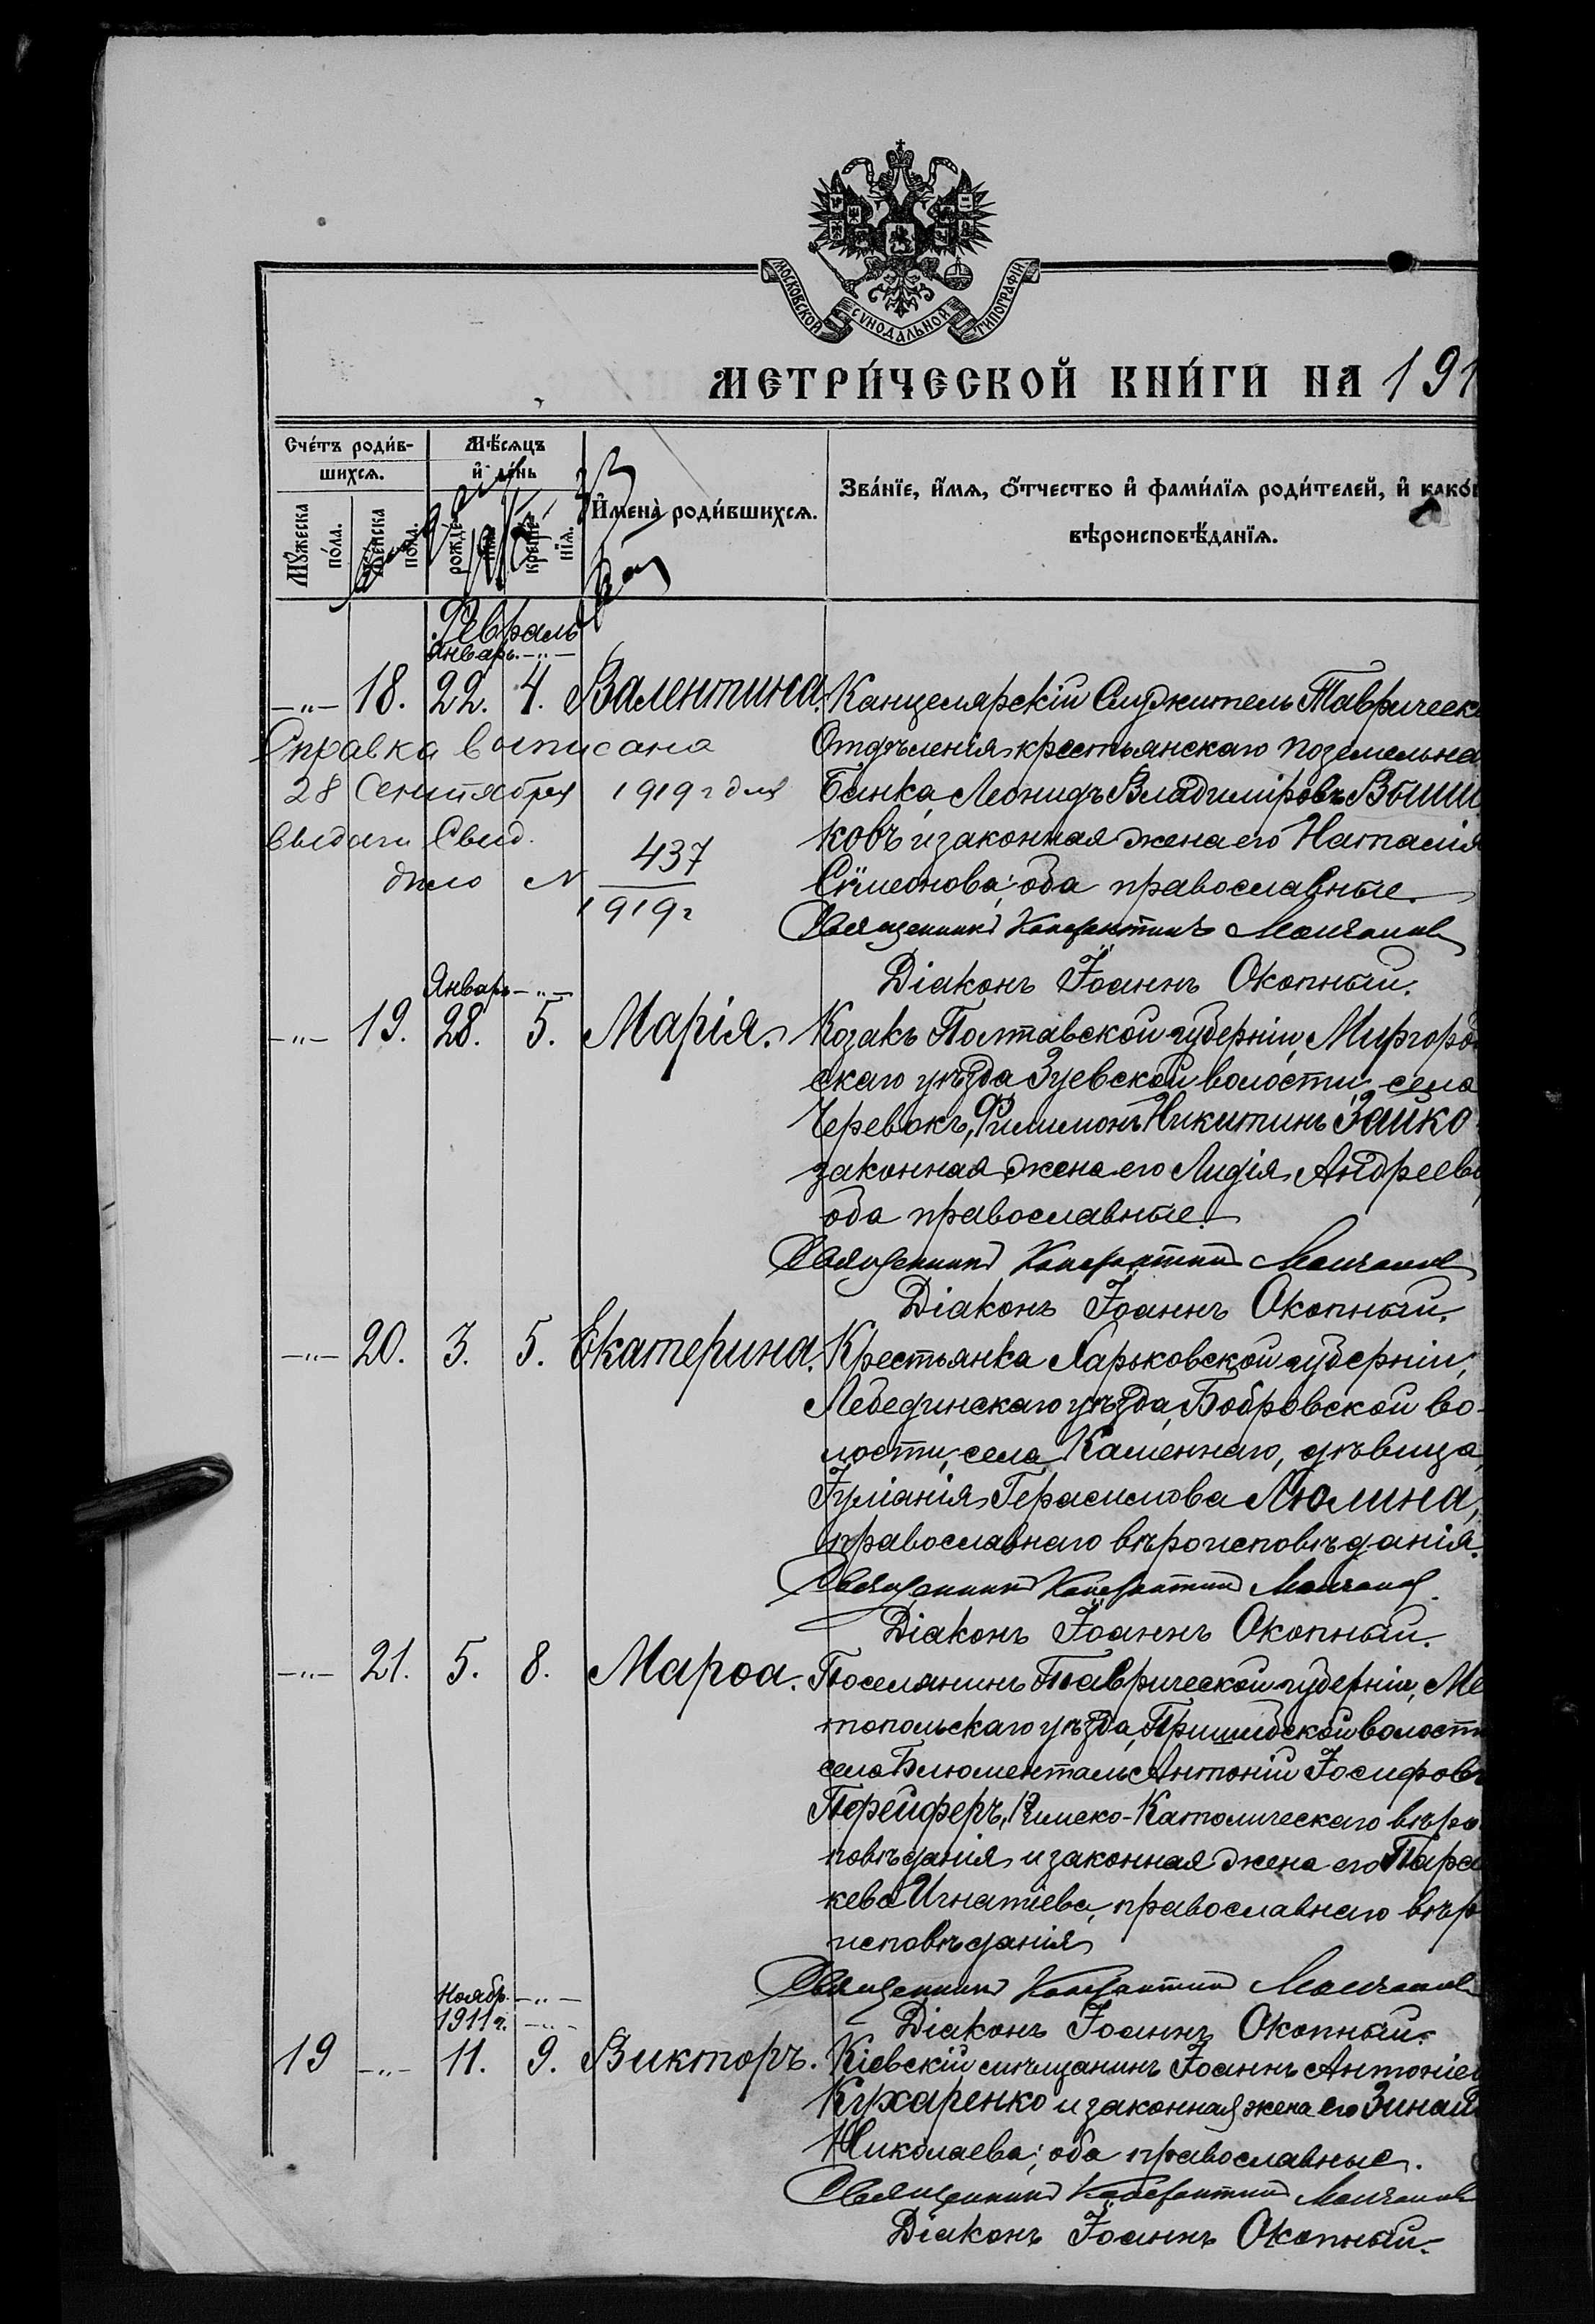 МОСКОВСКОЙ СѴНОДАЛЬНОЙ ТИПОГРАФІИ.
МЕТРИ́ЧЕСКОЙ КНИ́ГИ НА 191
Сче́тъ роди́в-
шихсѧ.
Мѣ́сѧцъ
и҆ де́нь
Мꙋ́жеска
по́ла.
Же́нска
по́ла.
рожде-
нїѧ.
креще-
нїѧ.
И҆мена̀ роди́вшихсѧ.
Зва́нїе, и҆́мѧ, ѻ҆́тчество и҆ фами́лїѧ роди́телей, и҆ како́
вѣроисповѣ́данїѧ.
Февраль
Январь. —„—
—„— 18. 22. 4. Валентина.
Канцелярскій Служитель Таврическ
Отдѣленія крестьянскаго поземельна
Банка, Леонидъ Владиміровъ Выши
ковъ и законная жена его Наталія
Сѵмеонова; оба православные.
Священникъ Константинъ Молчанов
Діаконъ Іоаннъ Окопный.
Справка выписана
28 Сентября 1919 г для
выдачи Свид.
дѣло N 437
1919 г
Январь —„—
—„— 19. 28. 5. Марія.
Козакъ Полтавской губерніи, Миргород
скаго уѣзда Зуевской волости, села
Черевокъ, Филимонъ Никитинъ Зайко
законная жена его Лидія Андреева
оба православные.
Священникъ Константинъ Молчанов
Діаконъ Іоаннъ Окопный.
—„— 20. 3. 5. Екатерина.
Крестьянка Харьковской губерніи,
Лебединскаго уѣзда, Бобровской во-
лости, села Каменнаго, дѣвица,
Іуліанія Герасимова Люлина,
православнаго вѣроисповѣданія.
Священникъ Константинъ Молчанов
Діаконъ Іоаннъ Окопный.
—„— 21. 5. 8. Марѳа.
Поселянинъ Таврической губерніи, Ме
топольскаго уѣзда, Пришибской волости
села Блюменталь Антоній Іосифовъ
Пфейферъ, Римско-Католическаго вѣро
повѣданія и законная жена его Пара
кева Игнатіева, православнаго вѣр
исповѣданія
Священникъ Константинъ Молчанов
Діаконъ Іоаннъ Окопный.
Ноябр. —„—
1911 г. —„—
19 —„— 11. 9. Викторъ.
Кіевскій мѣщанинъ Іоаннъ Антоніев
Кухаренко и законная жена его Зинаид
Николаева; оба православные.
Священникъ Константинъ Молчанов
Діаконъ Іоаннъ Окопный.